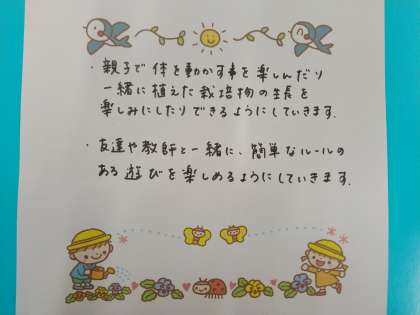 ・親子で体を動かす事を楽しんだり
一緒に植えた栽培物の生長を
楽しみにしたりできるようにしていきます.
・友達や教師と一緒に、簡単なルールの
ある遊びを楽しめるようにしていきます.